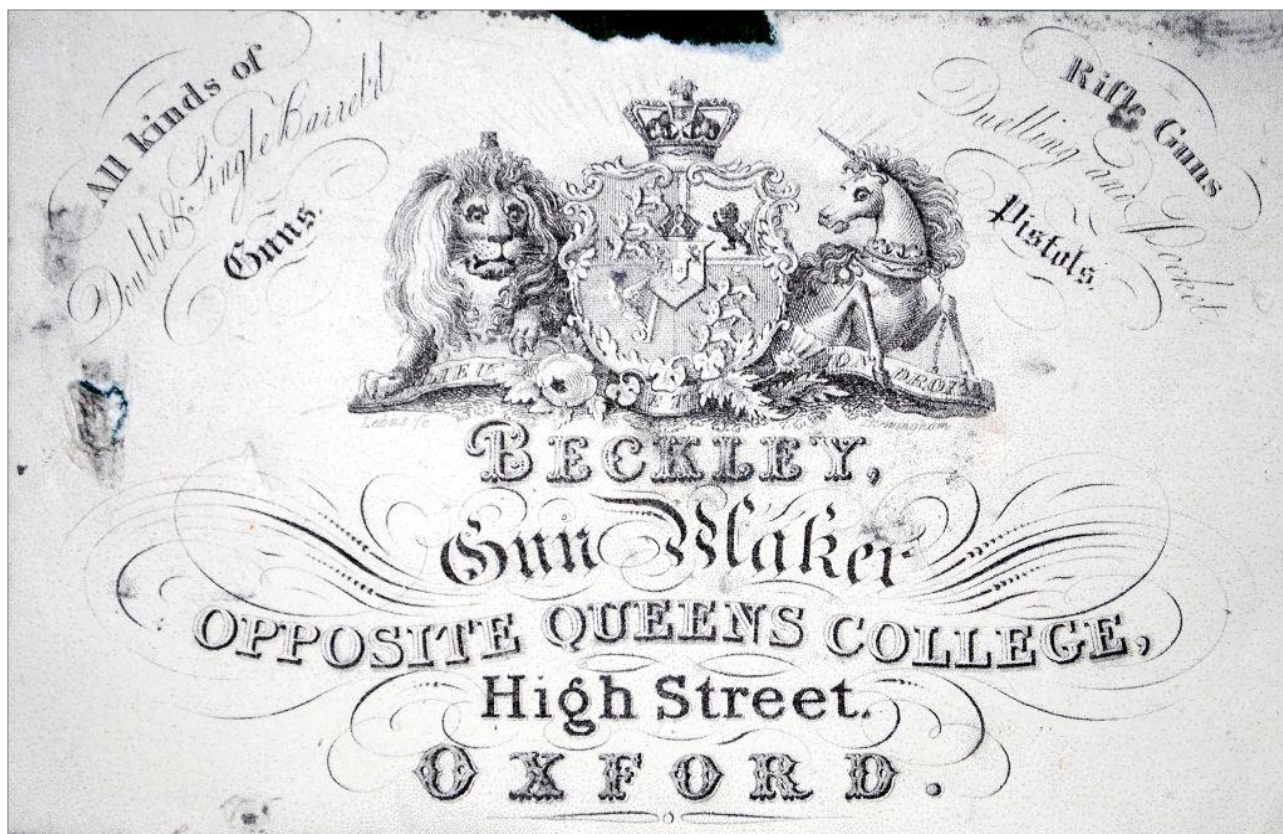 All kinds of
Double & Single Barrel'd
Guns.
Rifle Guns
Duelling and Pocket
Pistols.
DIEU ET MON DROIT
BECKLEY,
Gun Maker
OPPOSITE QUEENS COLLEGE,
High Street.
OXFORD.